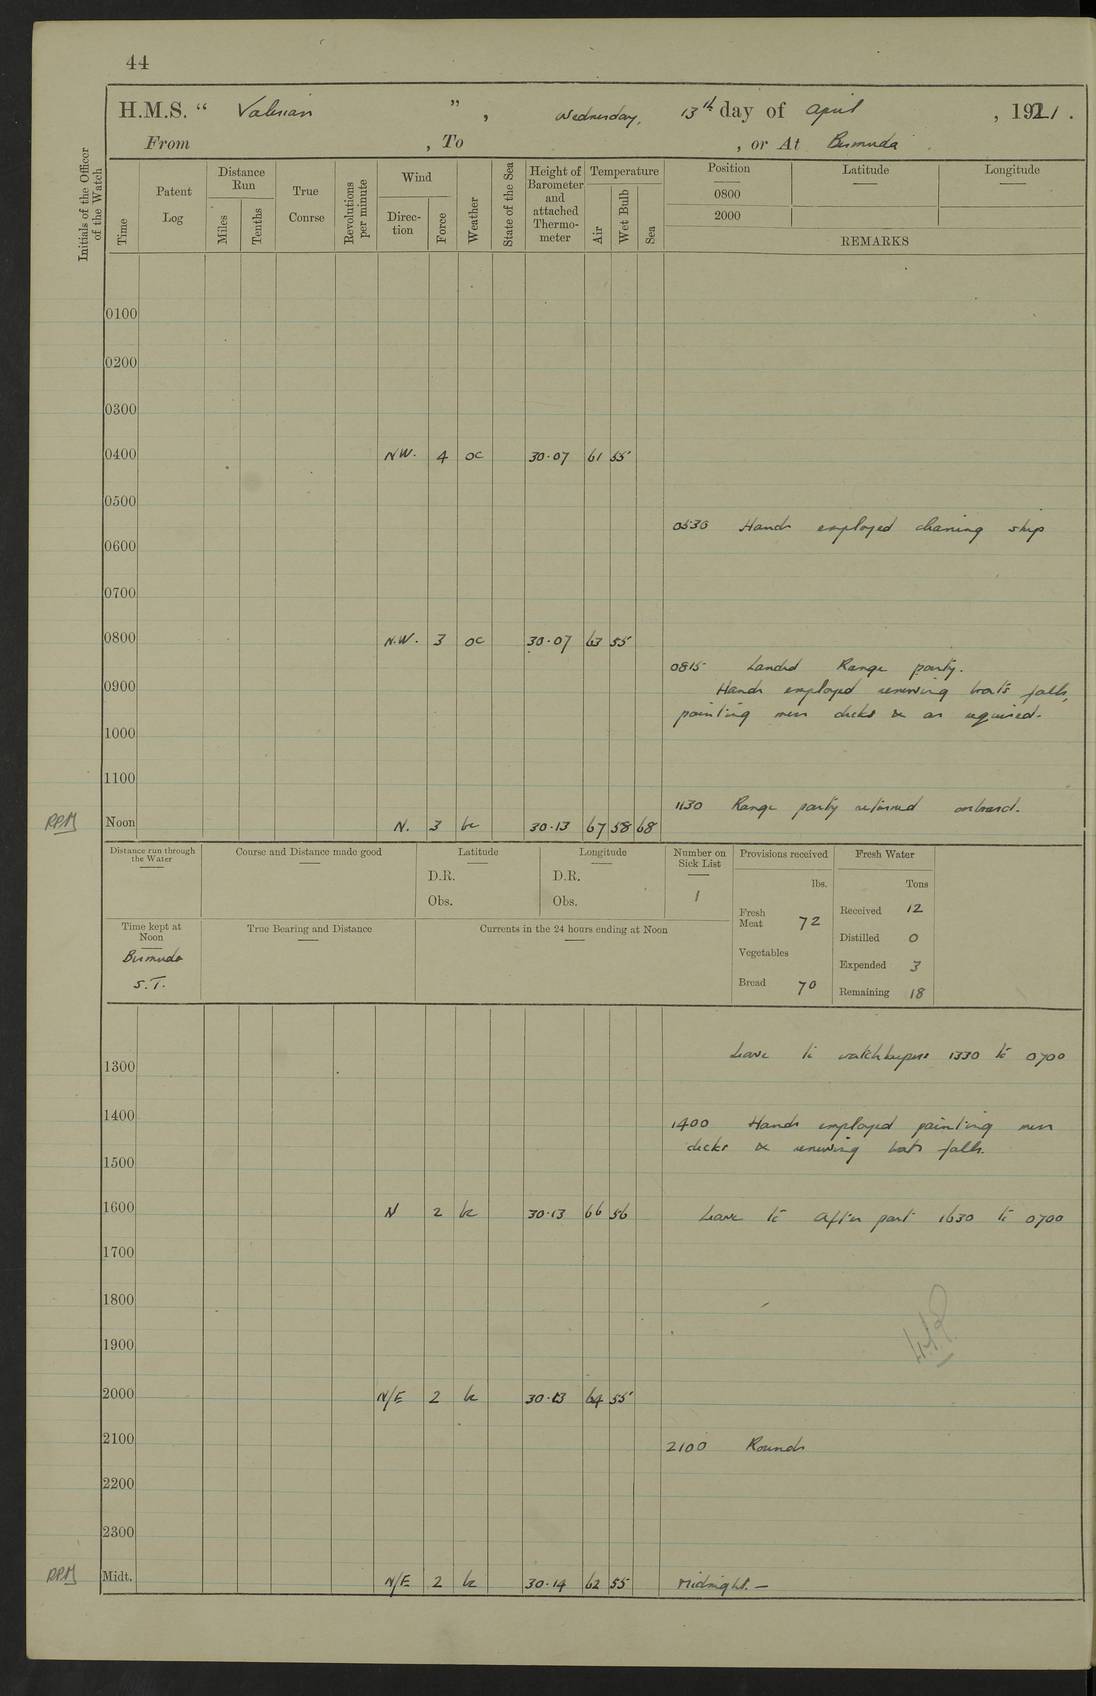 44
H.M.S. “ Valerian ”, Wednesday, 13th day of April, 1921.
From , To , or At Bermuda
Initials of the Officer of the Watch
Time
Patent Log
Distance Run
Miles
Tenths
True Course
Revolutions per minute
Wind
Direction
Force
Weather
State of the Sea
Height of Barometer and attached Thermometer
Temperature
Air
Wet Bulb
Sea
Position
Latitude
Longitude
0800
2000
REMARKS
0100
0200
0300
0400 NW. 4 oc 30.07 61 55
0500
0530 Hands employed cleaning ship
0600
0700
0800 N.W. 3 oc 30.07 63 55
0815 Landed Range party.
0900 Hands employed renewing boats falls,
painting mess decks & as required.
1000
1100
1130 Range party returned onboard.
RPM Noon N. 3 bc 30.13 67 58 68
Distance run through the Water
Course and Distance made good
Latitude
D.R.
Obs.
Longitude
D.R.
Obs.
Number on Sick List
1
Provisions received
lbs.
Fresh Meat 72
Vegetables
Bread 70
Fresh Water
Tons
Received 12
Distilled 0
Expended 3
Remaining 18
Time kept at Noon
Bermuda
S.T.
True Bearing and Distance
Currents in the 24 hours ending at Noon
Leave to watchkeepers 1330 to 0700
1300
1400 1400 Hands employed painting mess
decks & renewing boats falls.
1500
1600 N 2 bc 30.13 66 56 Leave to After part 1630 to 0700
1700
1800
1900
2000 N/E 2 bc 30.13 64 55
2100 2100 Rounds
2200
2300
RPM Midt. N/E 2 bc 30.14 62 55 Midnight.—